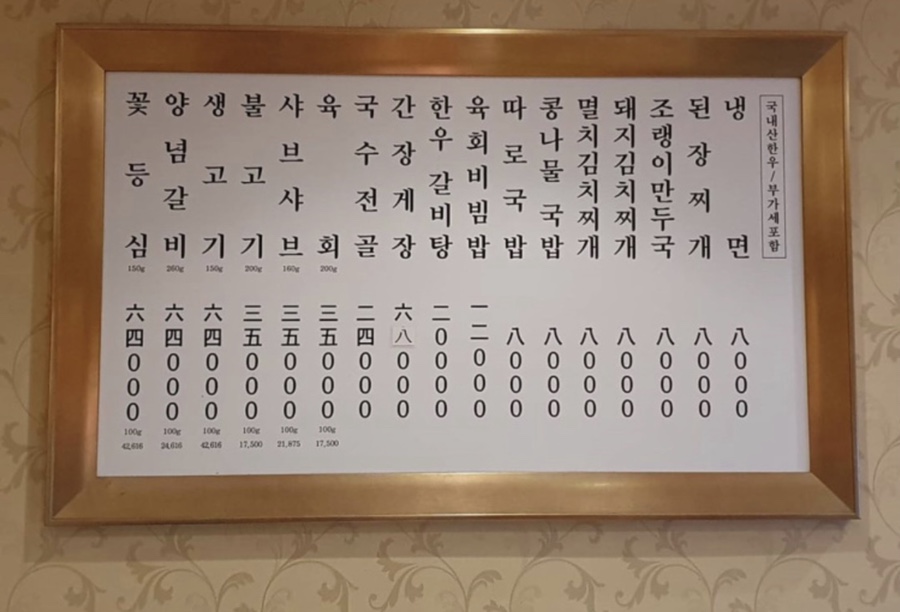 국내산한우/부가세포함
냉면 八000
된장찌개 八000
조랭이만두국 八000
돼지김치찌개 八000
멸치김치찌개 八000
콩나물국밥 八000
따로국밥 八000
육회비빔밥 一二000
한우갈비탕 二0000
간장게장 六八000
국수전골 二四000
육회 200g 三五000 100g 17,500
샤브샤브 160g 三五000 100g 21,875
불고기 200g 三五000 100g 17,500
생고기 150g 六四000 100g 42,616
양념갈비 260g 六四000 100g 24,616
꽃등심 150g 六四000 100g 42,616